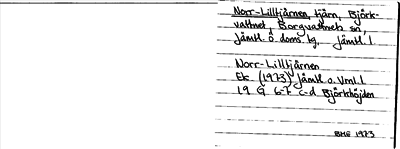 Norr-Lilltjärnen, tjärn, Björk-
vattnet, Borgvattnets sn,
Jämtl. ö. doms. tg. Jämtl. l.
Norr-Lilltjärnen
Ek (1973) Jämtl. o. Vnl. l
19 G 6-7 c-d Björkhöjden
BHE 1973